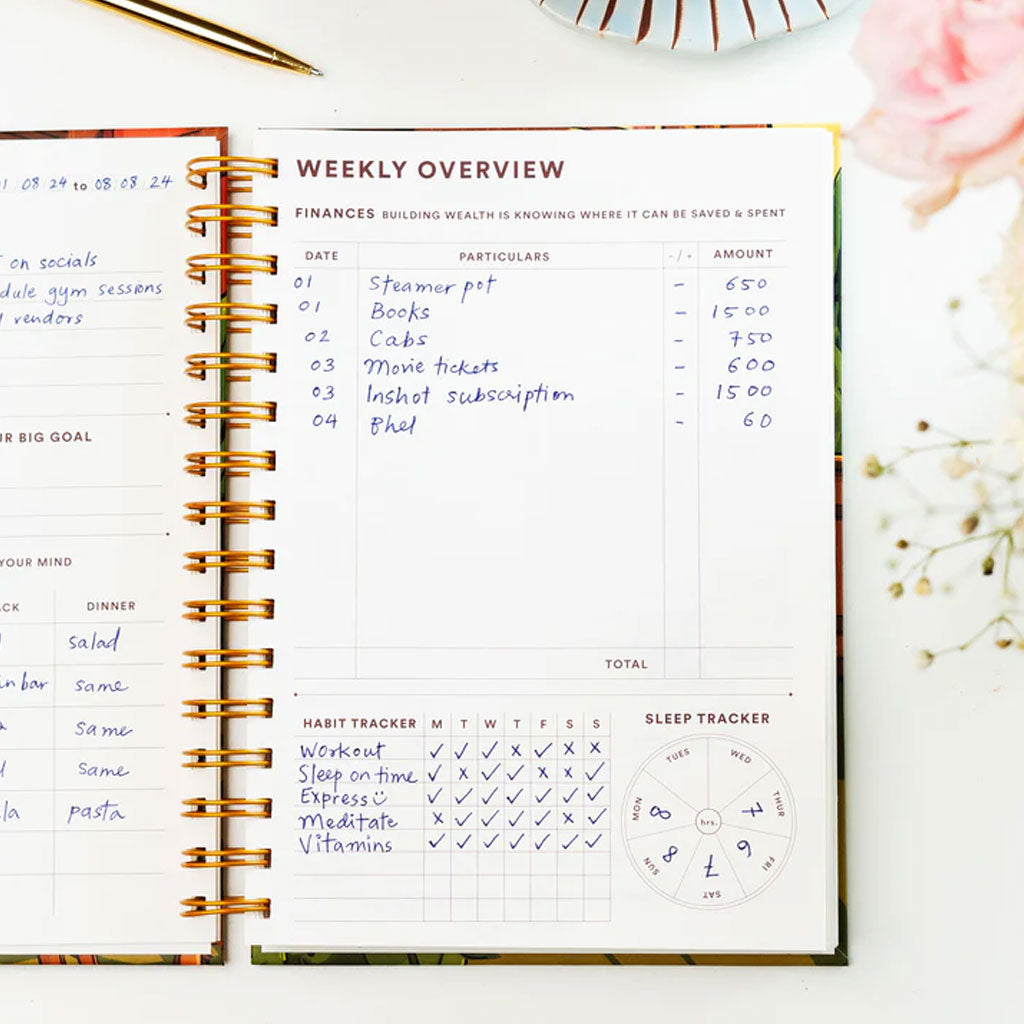 01 08 24 to 08 08 24
on socials
dule gym sessions
vendors
R BIG GOAL
YOUR MIND
CK DINNER
salad
in bar same
same
same
la pasta
WEEKLY OVERVIEW
FINANCES BUILDING WEALTH IS KNOWING WHERE IT CAN BE SAVED & SPENT
DATE PARTICULARS - / + AMOUNT
01 Steamer pot - 650
01 Books - 1500
02 Cabs - 750
03 Movie tickets - 600
03 Inshot subscription - 1500
04 Bhel - 60
TOTAL
HABIT TRACKER M T W T F S S
Workout ✓ ✓ ✓ x ✓ x x
Sleep on time ✓ x ✓ ✓ x x ✓
Express ☺ ✓ ✓ ✓ ✓ ✓ ✓ ✓
Meditate x ✓ ✓ ✓ ✓ x ✓
Vitamins ✓ ✓ ✓ ✓ ✓ ✓ ✓
SLEEP TRACKER
TUES WED
MON 8 7 THUR
hrs.
SUN 8 6 FRI
7
SAT